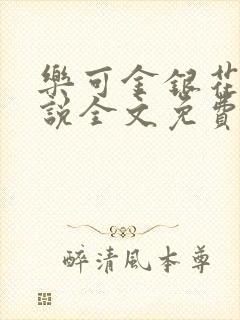 樂可金銀花
說全文免費
醉清風本尊